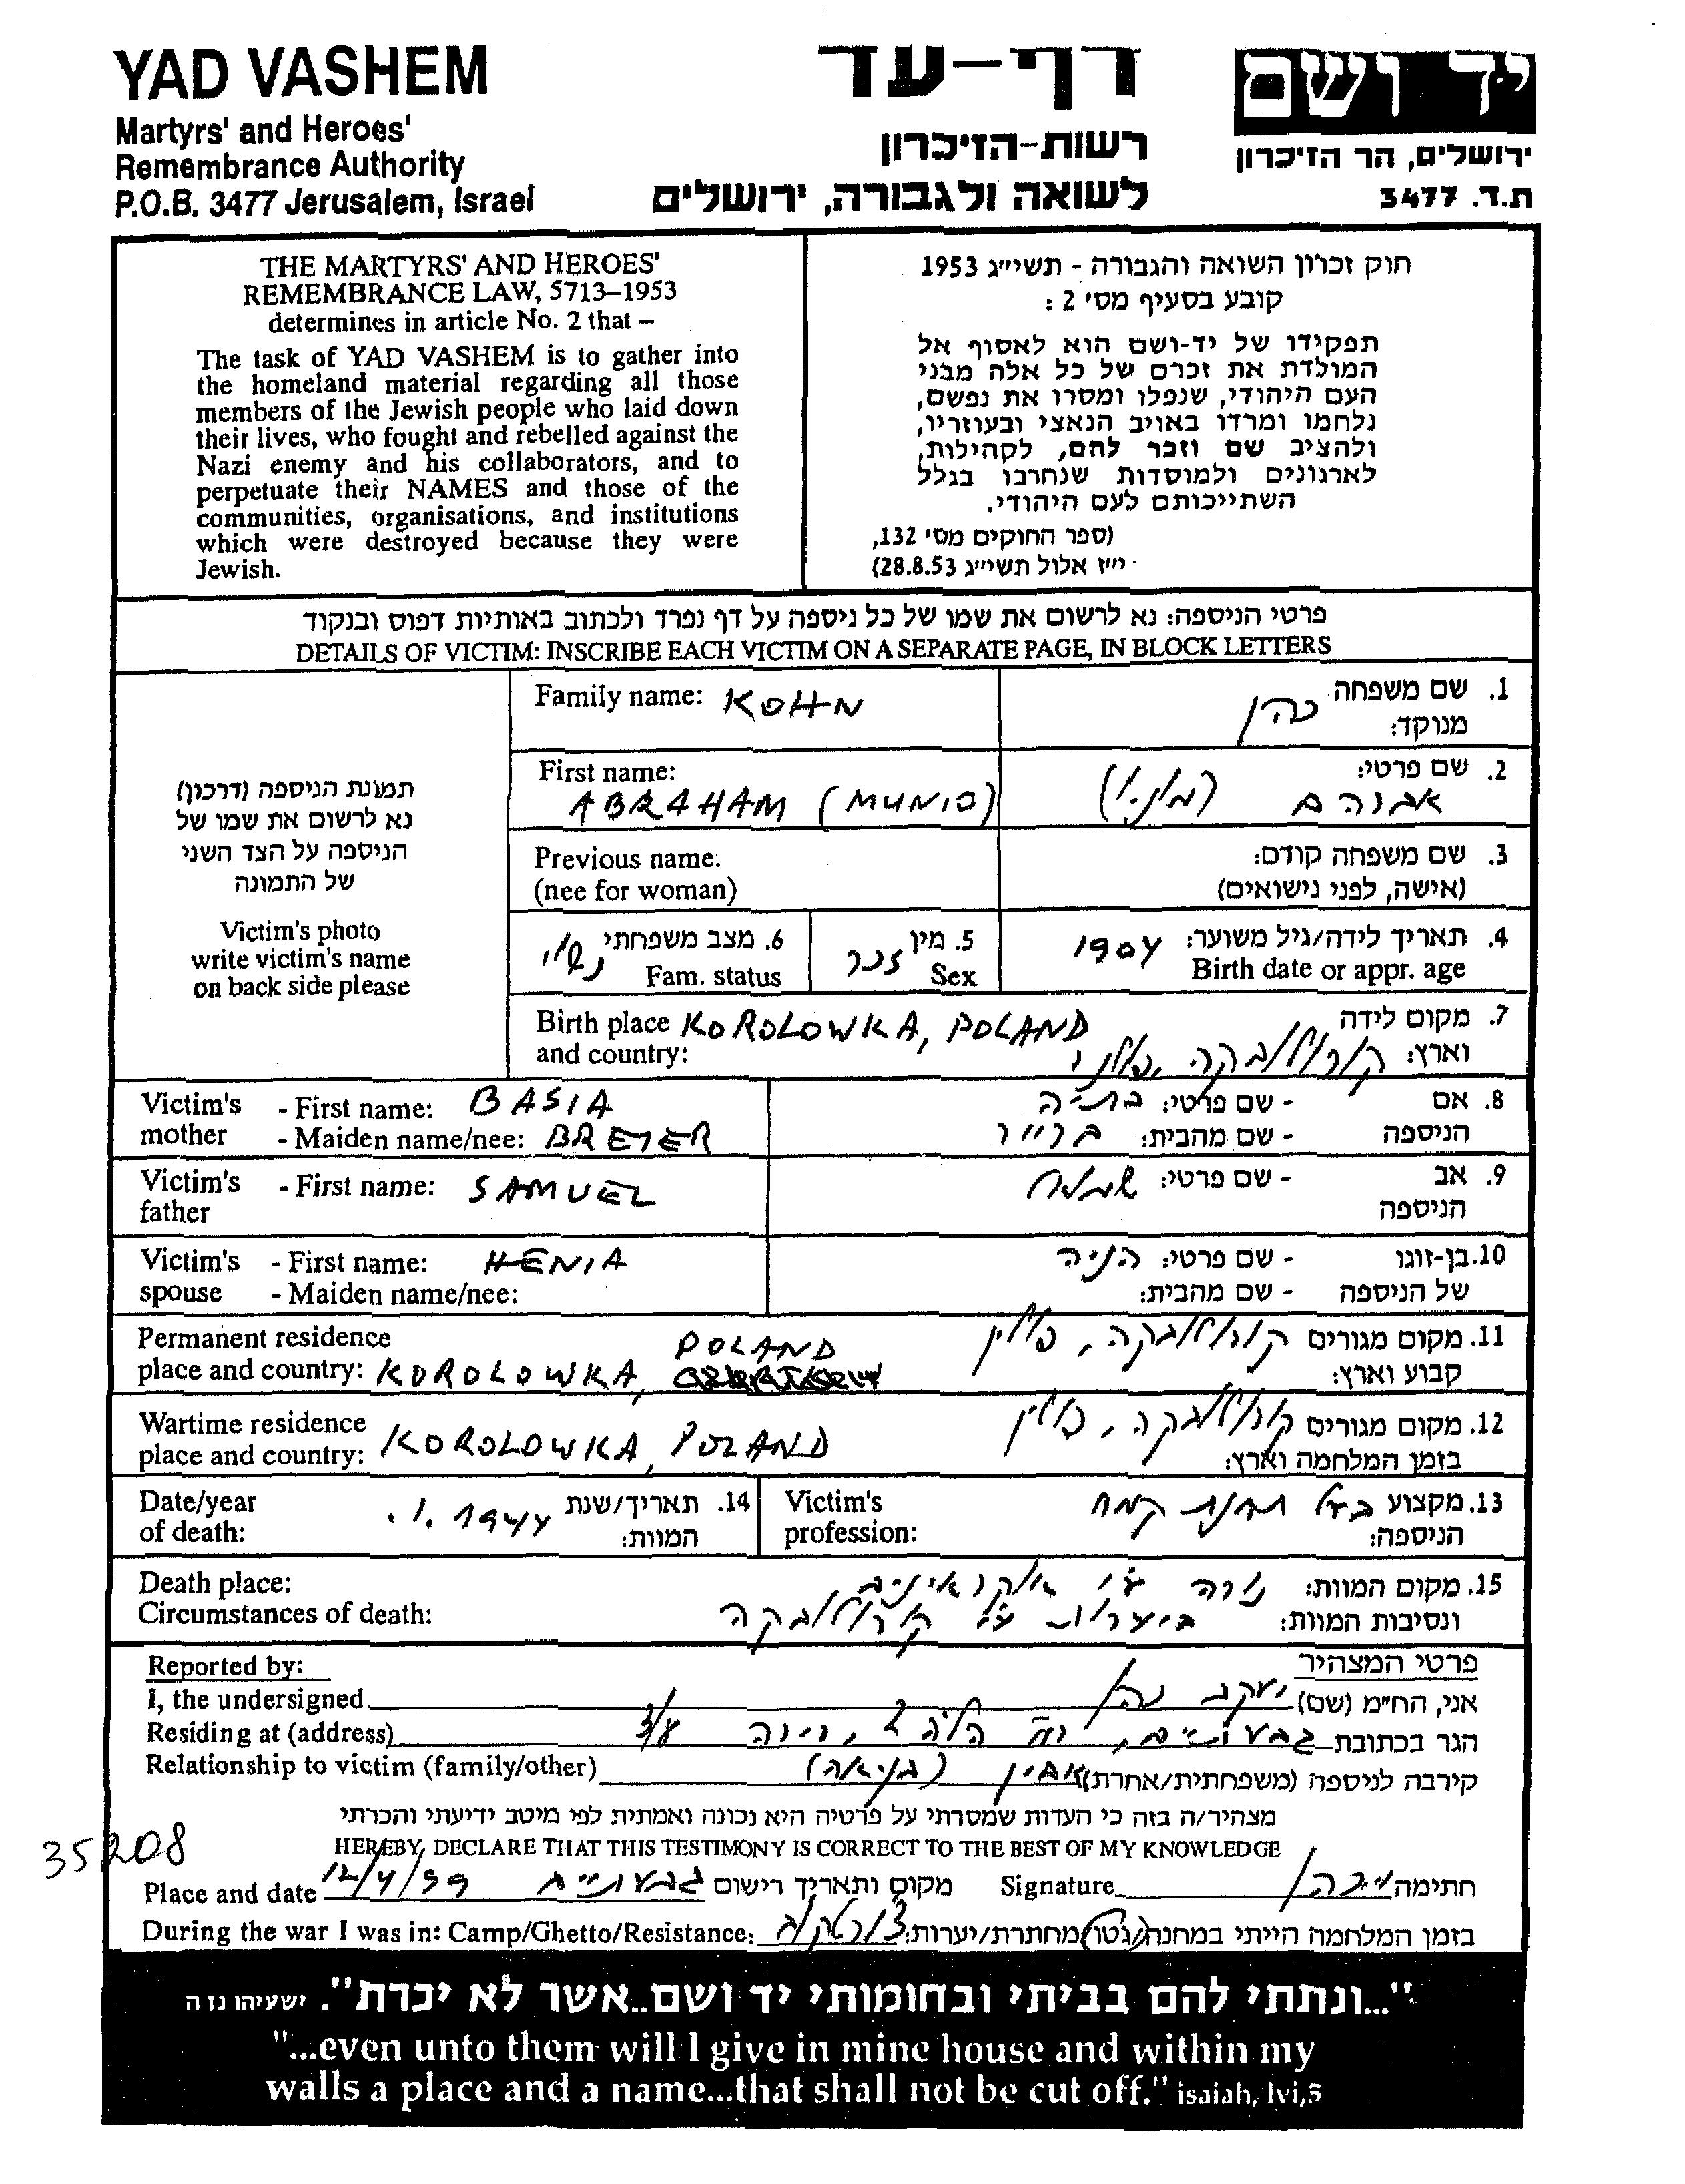 YAD VASHEM
Martyrs' and Heroes'
Remembrance Authority
P.O.B. 3477 Jerusalem, Israel
דף-עד
רשות-הזיכרון
לשואה ולגבורה, ירושלים
יד ושם
ירושלים, הר הזיכרון
ת.ד. 3477
THE MARTYRS' AND HEROES'
REMEMBRANCE LAW, 5713–1953
determines in article No. 2 that –
The task of YAD VASHEM is to gather into
the homeland material regarding all those
members of the Jewish people who laid down
their lives, who fought and rebelled against the
Nazi enemy and his collaborators, and to
perpetuate their NAMES and those of the
communities, organisations, and institutions
which were destroyed because they were
Jewish.
חוק זכרון השואה והגבורה - תשי״ג 1953
קובע בסעיף מס׳ 2 :
תפקידו של יד-ושם הוא לאסוף אל
המולדת את זכרם של כל אלה מבני
העם היהודי, שנפלו ומסרו את נפשם,
נלחמו ומרדו באויב הנאצי ובעוזריו,
ולהציב שם וזכר להם, לקהילות,
לארגונים ולמוסדות שנחרבו בגלל
השתייכותם לעם היהודי.
(ספר החוקים מס׳ 132,
י״ז אלול תשי״ג 28.8.53)
פרטי הניספה: נא לרשום את שמו של כל ניספה על דף נפרד ולכתוב באותיות דפוס ובנקוד
DETAILS OF VICTIM: INSCRIBE EACH VICTIM ON A SEPARATE PAGE, IN BLOCK LETTERS
תמונת הניספה (דרכון)
נא לרשום את שמו של
הניספה על הצד השני
של התמונה
Victim's photo
write victim's name
on back side please
Family name: KOHN
1. שם משפחה כהן
מנוקד:
First name:
ABRAHAM (MUNIO)
2. שם פרטי:
אברהם (מוניו)
Previous name:
(nee for woman)
3. שם משפחה קודם:
(אישה, לפני נישואים)
4. תאריך לידה/גיל משוער: 1904
Birth date or appr. age
5. מין זכר
Sex
6. מצב משפחתי נשוי
Fam. status
Birth place KOROLOWKA, POLAND
and country:
7. מקום לידה
וארץ: קורולובקה, פולין
Victim's - First name: BASIA
mother - Maiden name/nee: BREIER
8. אם - שם פרטי: בתיה
הניספה - שם מהבית: ברייר
Victim's - First name: SAMUEL
father
9. אב - שם פרטי: שמואל
הניספה
Victim's - First name: HENIA
spouse - Maiden name/nee:
10. בן-זוגו - שם פרטי: הניה
של הניספה - שם מהבית:
Permanent residence POLAND
place and country: KOROLOWKA,
11. מקום מגורים קורולובקה, פולין
קבוע וארץ:
Wartime residence
place and country: KOROLOWKA, POLAND
12. מקום מגורים קורולובקה, פולין
בזמן המלחמה וארץ:
Date/year
of death:
14. תאריך/שנת 1944
המוות:
Victim's
profession:
13. מקצוע בעל תחנת קמח
הניספה:
Death place:
Circumstances of death:
15. מקום המוות: נורה ע״י אוקראינים
ונסיבות המוות: ביערות ע״י קורולובקה
Reported by:
I, the undersigned
Residing at (address)
Relationship to victim (family/other)
פרטי המצהיר
אני, הח״מ (שם) יעקב כהן
הגר בכתובת גבעתיים,
קירבה לניספה (משפחתית/אחרת) אחיין
מצהיר/ה בזה כי העדות שמסרתי על פרטיה היא נכונה ואמתית לפי מיטב ידיעתי והכרתי
HEREBY, DECLARE THAT THIS TESTIMONY IS CORRECT TO THE BEST OF MY KNOWLEDGE
35208
Place and date 12/4/99 גבעתיים מקום ותאריך רישום
Signature חתימה
During the war I was in: Camp/Ghetto/Resistance:
בזמן המלחמה הייתי במחנה/גטו/מחתרת/יערות: צ'ורטקוב
"...ונתתי להם בביתי ובחומותי יד ושם..אשר לא יכרת". ישעיהו נו ה
"...even unto them will I give in mine house and within my
walls a place and a name...that shall not be cut off." isaiah, lvi,5